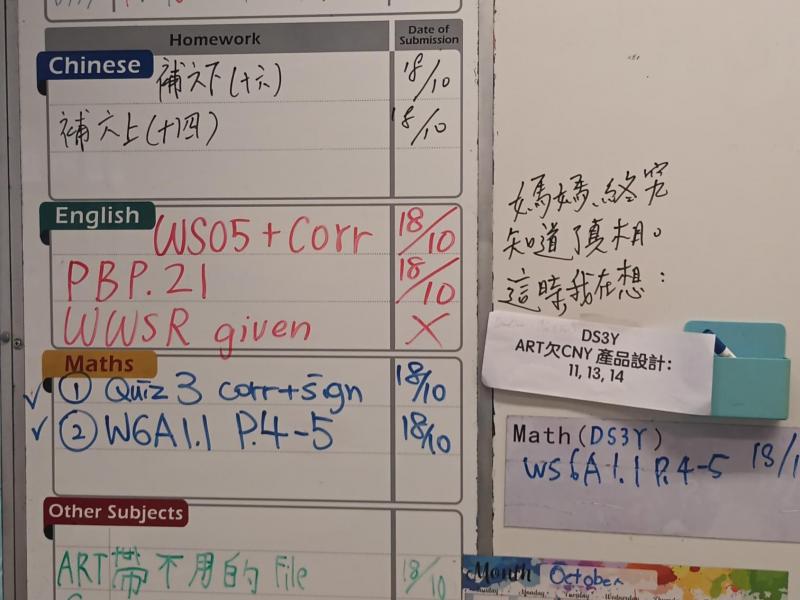 Homework
Date of Submission
Chinese
補六下(十六) 18/10
補六上(十四) 18/10
English
WS05 + Corr 18/10
PBP.21 18/10
WWSR given X
Maths
✓ ① Quiz 3 corr+sign 18/10
✓ ② W6A1.1 P.4-5 18/10
Other Subjects
ART帶不用的 File 18/10
媽媽終究
知道了真相。
這時我在想：
DS3Y
ART欠CNY 產品設計:
11, 13, 14
Math (DS3Y)
WS 6A1.1 P.4-5 18/1
Month October